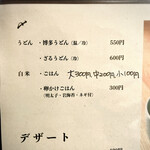 うどん ・博多うどん(温/冷) 550円
・ざるうどん(冷) 600円
白米 ・ごはん 大300円 中200円 小100円
・卵かけごはん 300円
(明太子・岩海苔・ネギ付)
デザート